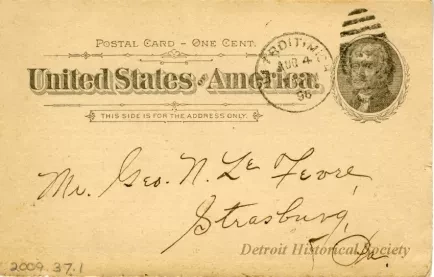 POSTAL CARD - ONE CENT.
United States of America.
THIS SIDE IS FOR THE ADDRESS ONLY.
DETROIT, MICH.
AUG 4
96
Mr. Geo. N. Le Fevre,
Strasburg,
Pa.
Detroit Historical Society
2009.37.1